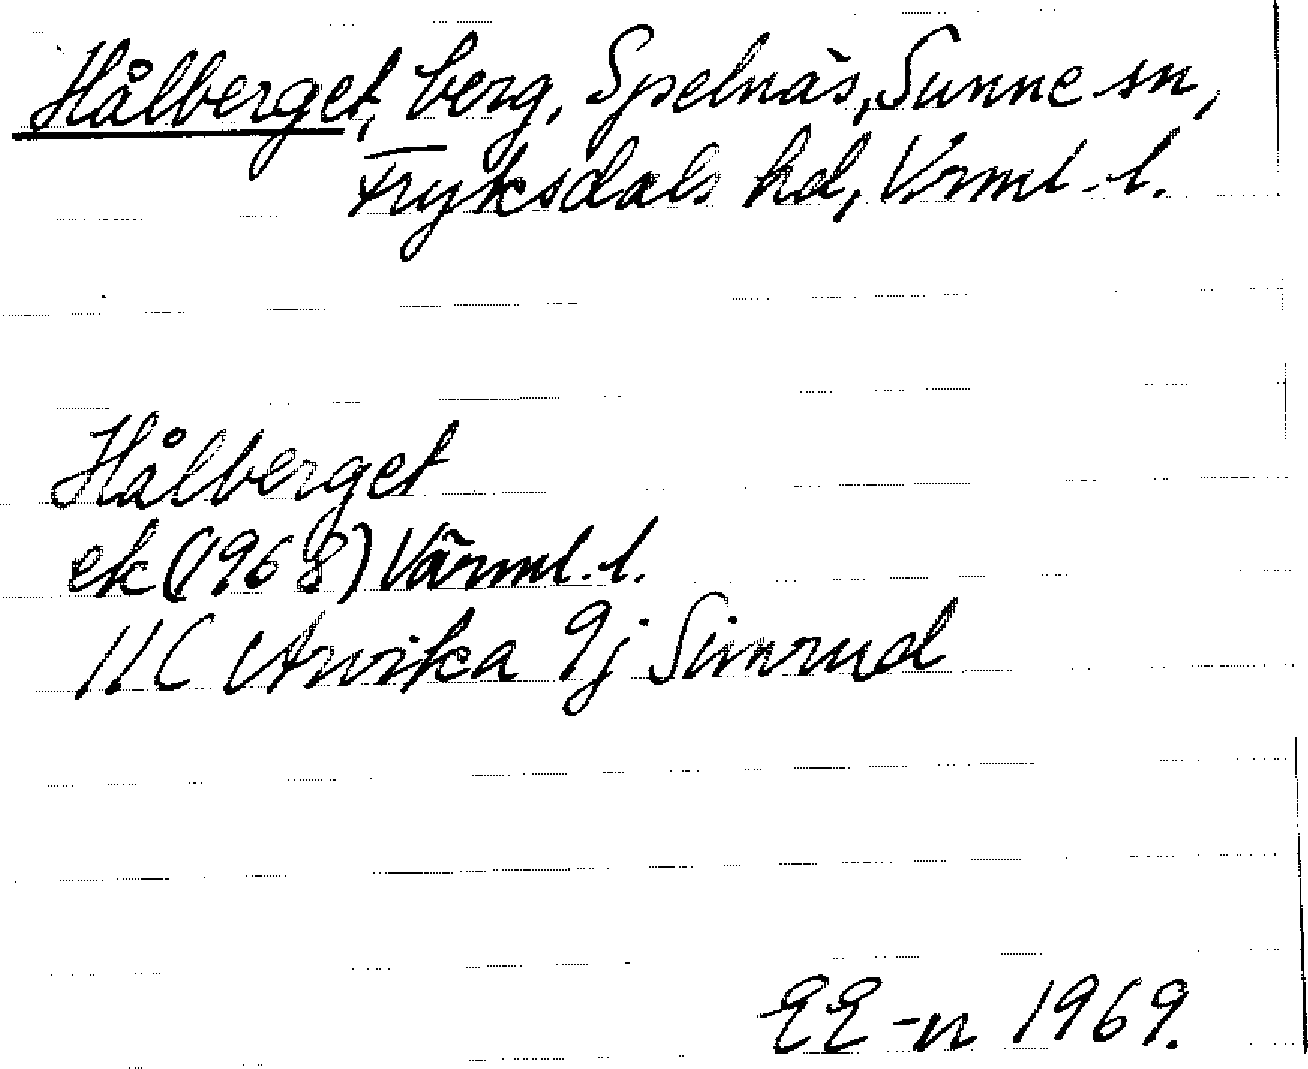 Hålberget, berg, Spelnäs, Sunne sn,
Fryksdals hd, Vrml. l.
Hålberget
ek (1968) Värml. l.
11C Arvika 9j Simrud
EE-n 1969.